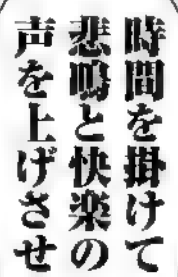 時間を掛けて
悲鳴と快楽の
声を上げさせ